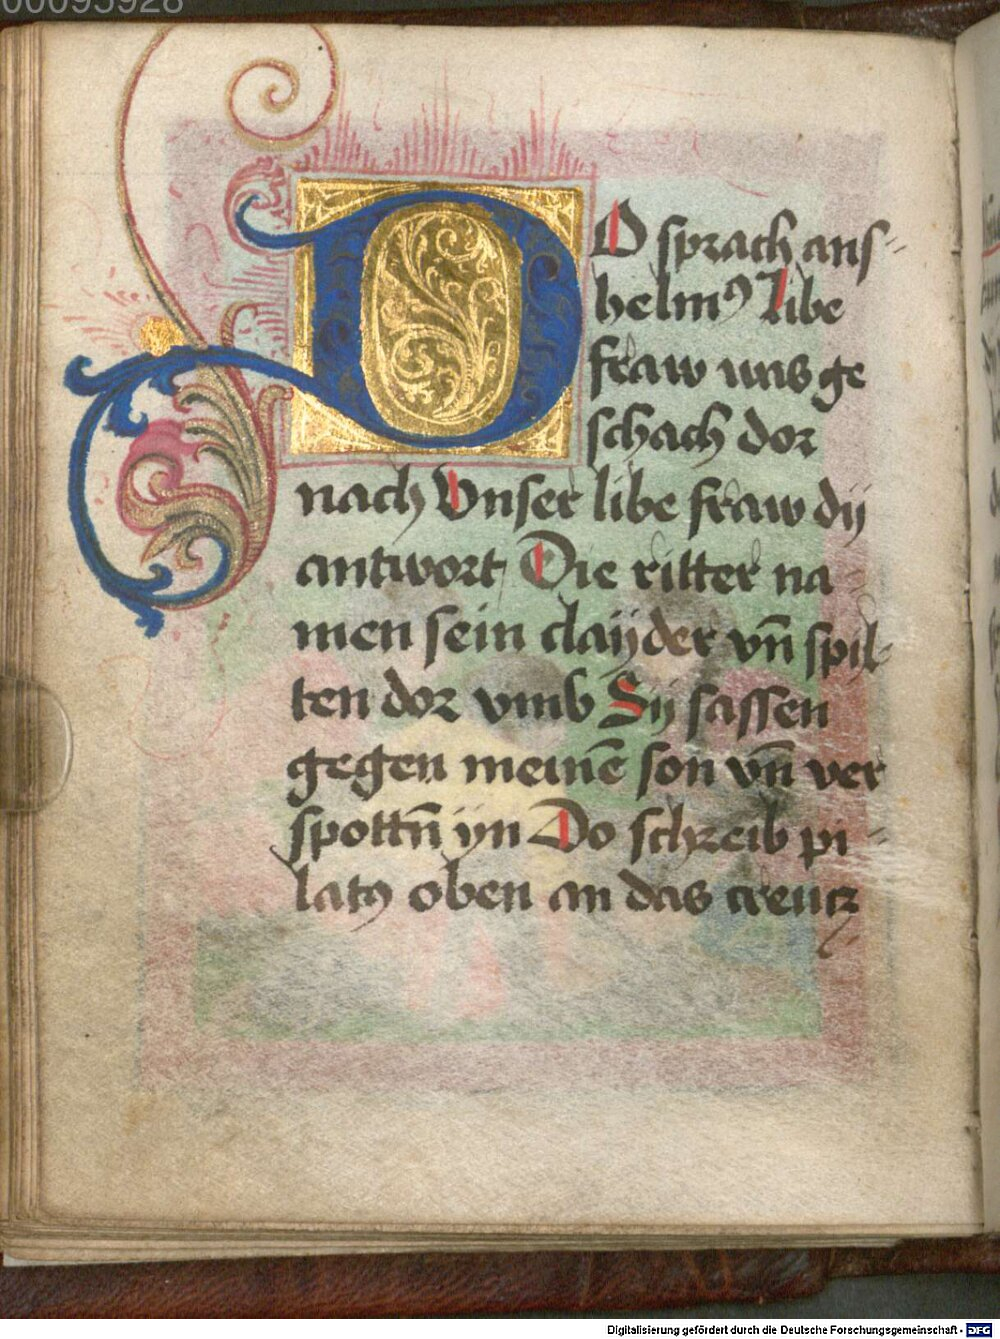 00095928
DO sprach ans⸗
helmꝰ Libe
fraw was ge
schach dor
nach Vnser libe fraw dij
antwort Die ritter na⸗
men sein claÿder vn̄ spil⸗
ten dor vmb Sij sassen
gegen meinē son vn̄ ver
spottn̄ ÿn Do schreib pi⸗
latꝰ oben an das creucz
Digitalisierung gefördert durch die Deutsche Forschungsgemeinschaft - DFG